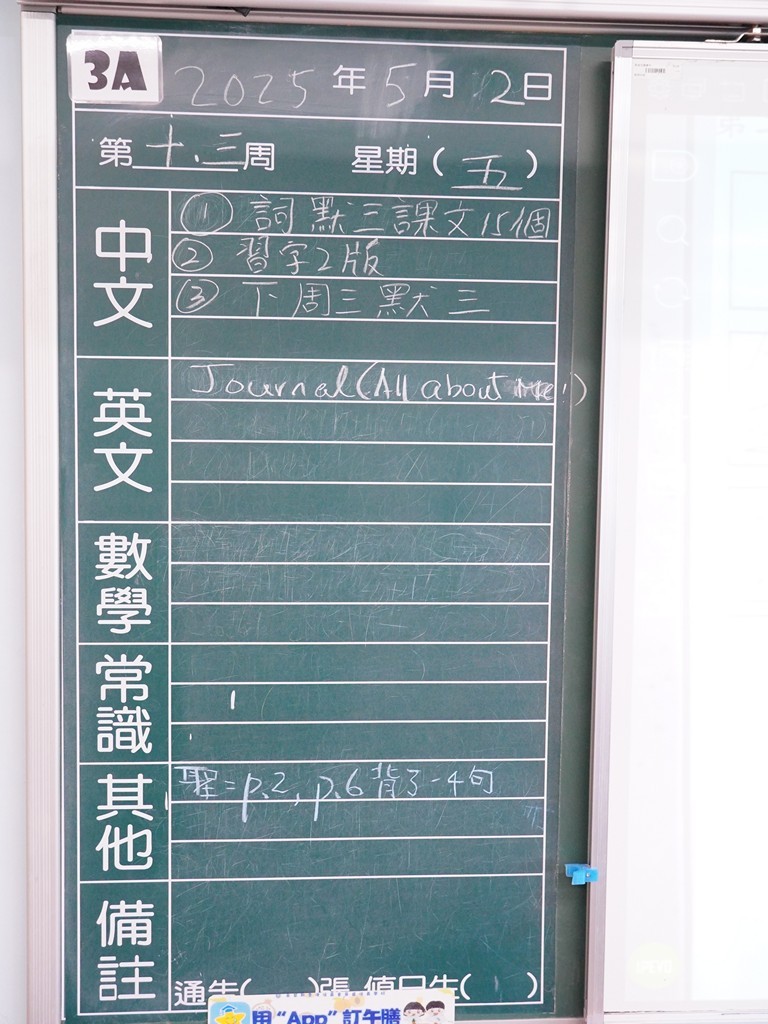 3A
2025年5月2日
第十三周 星期(五)
中文
① 詞默三課文15個
② 習字2版
③ 下周三默三
英文
Journal(All about Me!)
數學
常識
其他
聖=p.2, p.6背了-4句
備註
通告( )張 值日生( )
用"App"訂午膳